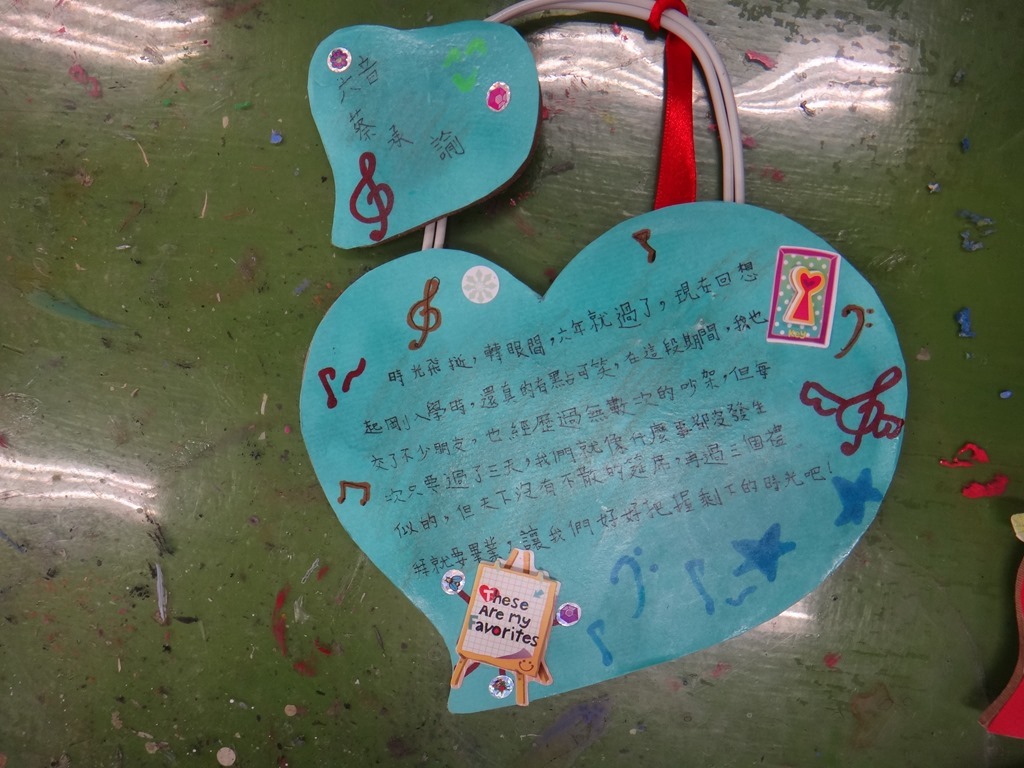 六音
蔡承諭
時光飛梭，轉眼間，六年就過了，現在回想
起剛入學時，還真的有點可笑，在這段期間，我也
交了不少朋友，也經歷過無數次的吵架，但每
次只要過了三天，我們就像什麼事都沒發生
似的，但天下沒有不散的筵席，再過三個禮
拜就要畢業，讓我們好好把握剩下的時光吧！
These
Are my
Favorites